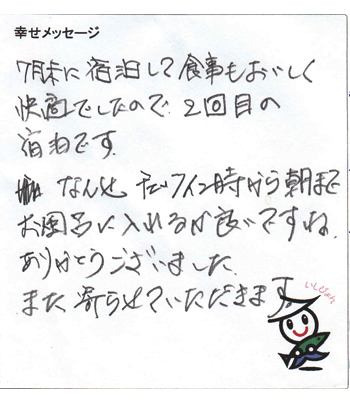 幸せメッセージ
7月末に宿泊して食事もおいしく
快適でしたので2回目の
宿泊です。
なんと チェックイン時から朝まで
お風呂に入れるが良いですね。
ありがとうございました。
また寄らせていただきます。